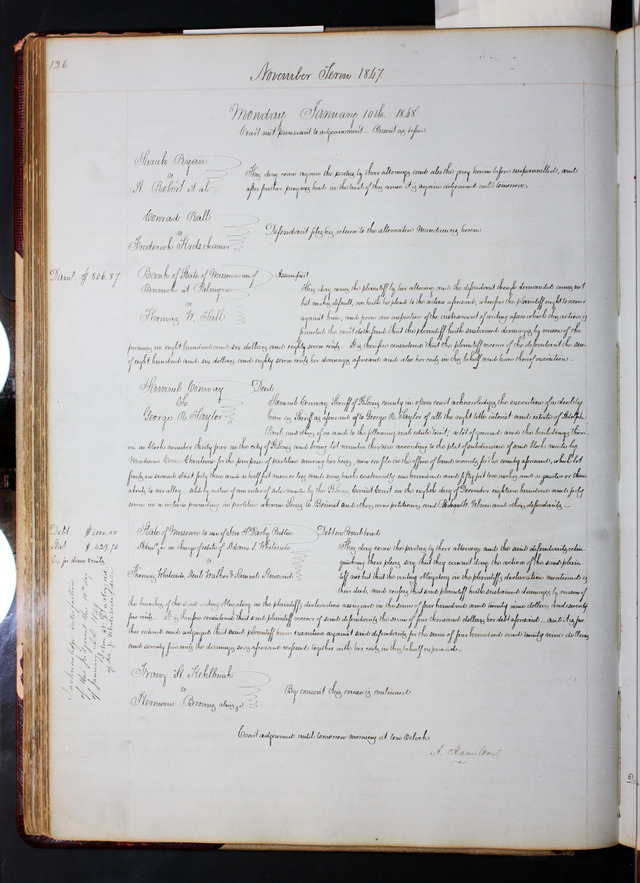 126.
November Term 1847.
Monday January 10th 1848
Court met pursuant to adjournment. Present as before
Sarah Ryan
vs
A. Robert et al
This day come again the parties by their attorneys and also the jury herein before empannelled, and
after further progress had in the trial of this cause it is again adjourned until tomorrow.
Conrad Ball
vs
Frederick
Defendant files his return to the alternative Mandamus herein
Dam $806.87
Bank of State of Missouri
Branch at Palmyra
vs
Thomas W. Hall
Assumpsit
This day comes the plaintiff by her attorney and the defendant though demanded comes not
but makes default, nor hath he plead to the action aforesaid, wherefore the plaintiff ought to recover
against him, and from an inspection of the instrument of writing upon which this action is
founded the court doth find that the plaintiff hath sustained damages by reason of the
premises in eight hundred and six dollars and eighty seven cents. It is therefore considered that the plaintiff recover of the defendant the sum
of eight hundred and six dollars and eighty seven cents her damages aforesaid and also her costs in this behalf and have thereof execution.
Samuel Conway
To
George R. Taylor
Deed
Samuel Conway Sheriff of St. Louis county in open court acknowledges the execution of a deed by
him as Sheriff as aforesaid to George R. Taylor of all the right title interest and estate of Adolph
Paul and others of in and to the following real estate to wit; a lot of ground and the buildings there-
on in block number thirty four in the city of St. Louis and being lot number thirteen according to the plat of subdivision of said block made by
Madame Chouteau for the purpose of partition among her heirs, now on file in the office of land records for the county aforesaid, which lot
fronts on second street forty three and a half feet more or less and runs back westwardly one hundred and fifty feet
about to an alley. Sold by virtue of an order of sale made by the St. Louis Circuit Court on the eighth day of December eighteen hundred and forty
seven in a certain proceeding in partition wherein and others were petitioners and and others defendants.
Debt $4000.00
Dam $429.75
State of Missouri to use of
Adm in charge of estate of
vs
Thomas Whitesides, Neal Walker & Samuel Howard
Debt on Penal bond
This day come the parties by their attorneys and the said defendants relin-
quishing their pleas say that they cannot deny the action of the said plain-
tiff nor but that the writing obligatory in the plaintiff's declaration mentioned is
their deed, and confess that said plaintiff hath sustained damages by reason of
the breaches of the said writing obligatory in the plaintiff's declaration assigned in the sum of four hundred and twenty nine dollars and seventy
five cents. It is therefore considered that said plaintiff recover of said defendants the sum of four thousand dollars, her debt aforesaid and it is fur-
ther ordered and adjudged that said plaintiff have execution against said defendants for the sum of four hundred and twenty nine dollars
and seventy five cents the damages so as aforesaid confessed together with her costs in this behalf expended.
vs
Herman
By consent this cause is continued
Court adjourned until tomorrow morning at ten O'clock
A. Hamilton